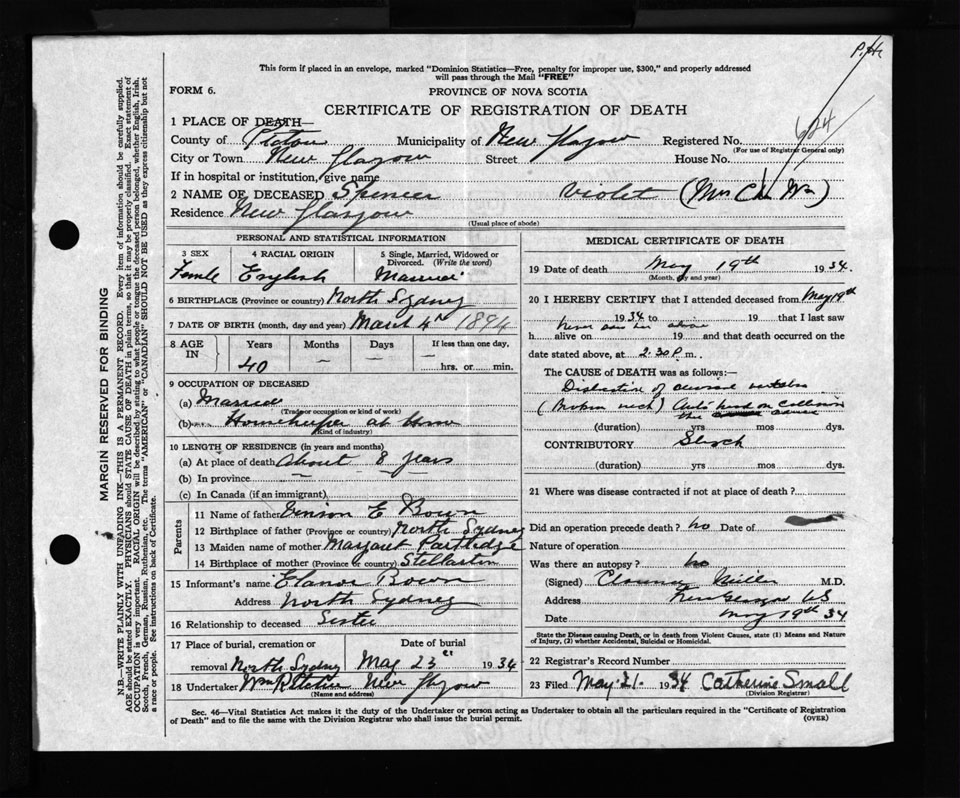 P.H.
This form if placed in an envelope, marked "Dominion Statistics—Free, penalty for improper use, $300," and properly addressed
will pass through the Mail "FREE"
FORM 6.
PROVINCE OF NOVA SCOTIA
CERTIFICATE OF REGISTRATION OF DEATH
1 PLACE OF DEATH—
County of Pictou Municipality of New Glasgow Registered No. 604
(For use of Registrar General only)
City or Town New Glasgow Street House No.
If in hospital or institution, give name
2 NAME OF DECEASED Spencer Violet (Mrs Wm)
Residence New Glasgow
(Usual place of abode)
PERSONAL AND STATISTICAL INFORMATION
3 SEX 4 RACIAL ORIGIN 5 Single, Married, Widowed or
Divorced. (Write the word)
Female English Married
6 BIRTHPLACE (Province or country) North Sydney
7 DATE OF BIRTH (month, day and year) March 4th 1894
8 AGE IN Years Months Days If less than one day,
40 — — — hrs. or min.
9 OCCUPATION OF DECEASED
(a) Married
(Trade or occupation or kind of work)
(b) Housekeeper at home
(Kind of industry)
10 LENGTH OF RESIDENCE (in years and months)
(a) At place of death About 8 years
(b) In province
(c) In Canada (if an immigrant)
Parents
11 Name of father E Bown
12 Birthplace of father (Province or country) North Sydney
13 Maiden name of mother Margaret Partledge
14 Birthplace of mother (Province or country) Stellarton
15 Informant's name Elanor Bown
Address North Sydney
16 Relationship to deceased Sister
17 Place of burial, cremation or Date of burial
removal North Sydney May 23rd 1934
18 Undertaker Wm R New Glasgow
(Name and address)
MEDICAL CERTIFICATE OF DEATH
19 Date of death May 19th 1934.
(Month, day and year)
20 I HEREBY CERTIFY that I attended deceased from May 19th
1934 to 19 that I last saw
never saw her alive
h alive on 19 and that death occurred on the
date stated above, at 2.30 P.m.
The CAUSE of DEATH was as follows:—
Dislocation of cervical vertebra
(broken neck) Auto head on Collision
(duration) yrs mos dys.
CONTRIBUTORY Shock
(duration) yrs mos dys.
21 Where was disease contracted if not at place of death?
Did an operation precede death? no Date of
Nature of operation
Was there an autopsy? no
(Signed) Clarence Miller M.D.
Address New Glasgow NS
Date May 19th 34
State the Disease causing Death, or in death from Violent Causes, state (1) Means and Nature
of Injury, (2) whether Accidental, Suicidal or Homicidal.
22 Registrar's Record Number
23 Filed May 21 1934 Catherine Small
(Division Registrar)
Sec. 46—Vital Statistics Act makes it the duty of the Undertaker or person acting as Undertaker to obtain all the particulars required in the "Certificate of Registration
of Death" and to file the same with the Division Registrar who shall issue the burial permit.
(OVER)
MARGIN RESERVED FOR BINDING
N.B.—WRITE PLAINLY WITH UNFADING INK—THIS IS A PERMANENT RECORD. Every item of information should be carefully supplied.
AGE should be stated EXACTLY. PHYSICIANS should STATE CAUSE OF DEATH in plain terms, so that it may be properly classified. Exact statement of
OCCUPATION is very important. RACIAL ORIGIN will be described by stating to what people or tongue the deceased person belonged, whether English, Irish,
Scotch, French, German, Russian, Ruthenian, etc. The terms "AMERICAN" or "CANADIAN" SHOULD NOT BE USED as they express citizenship but not
a race or people. See instructions on back of Certificate.